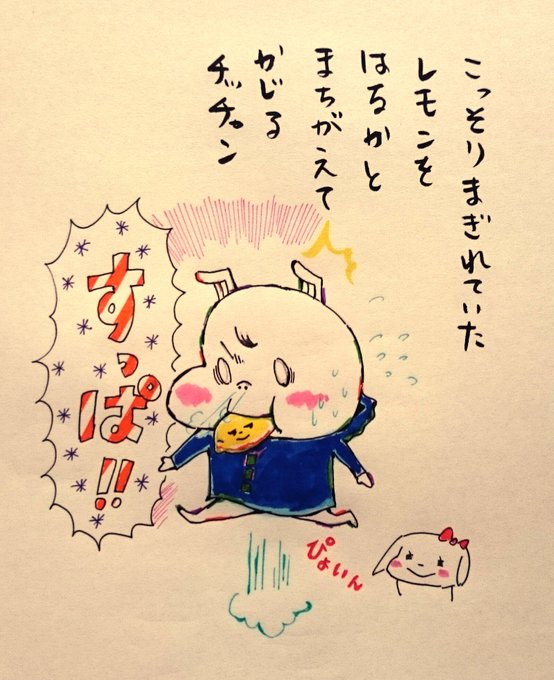 こっそりまぎれていた
レモンを
はるかと
まちがえて
かじる
チッチャン
すっぱ!!
ぴょいん